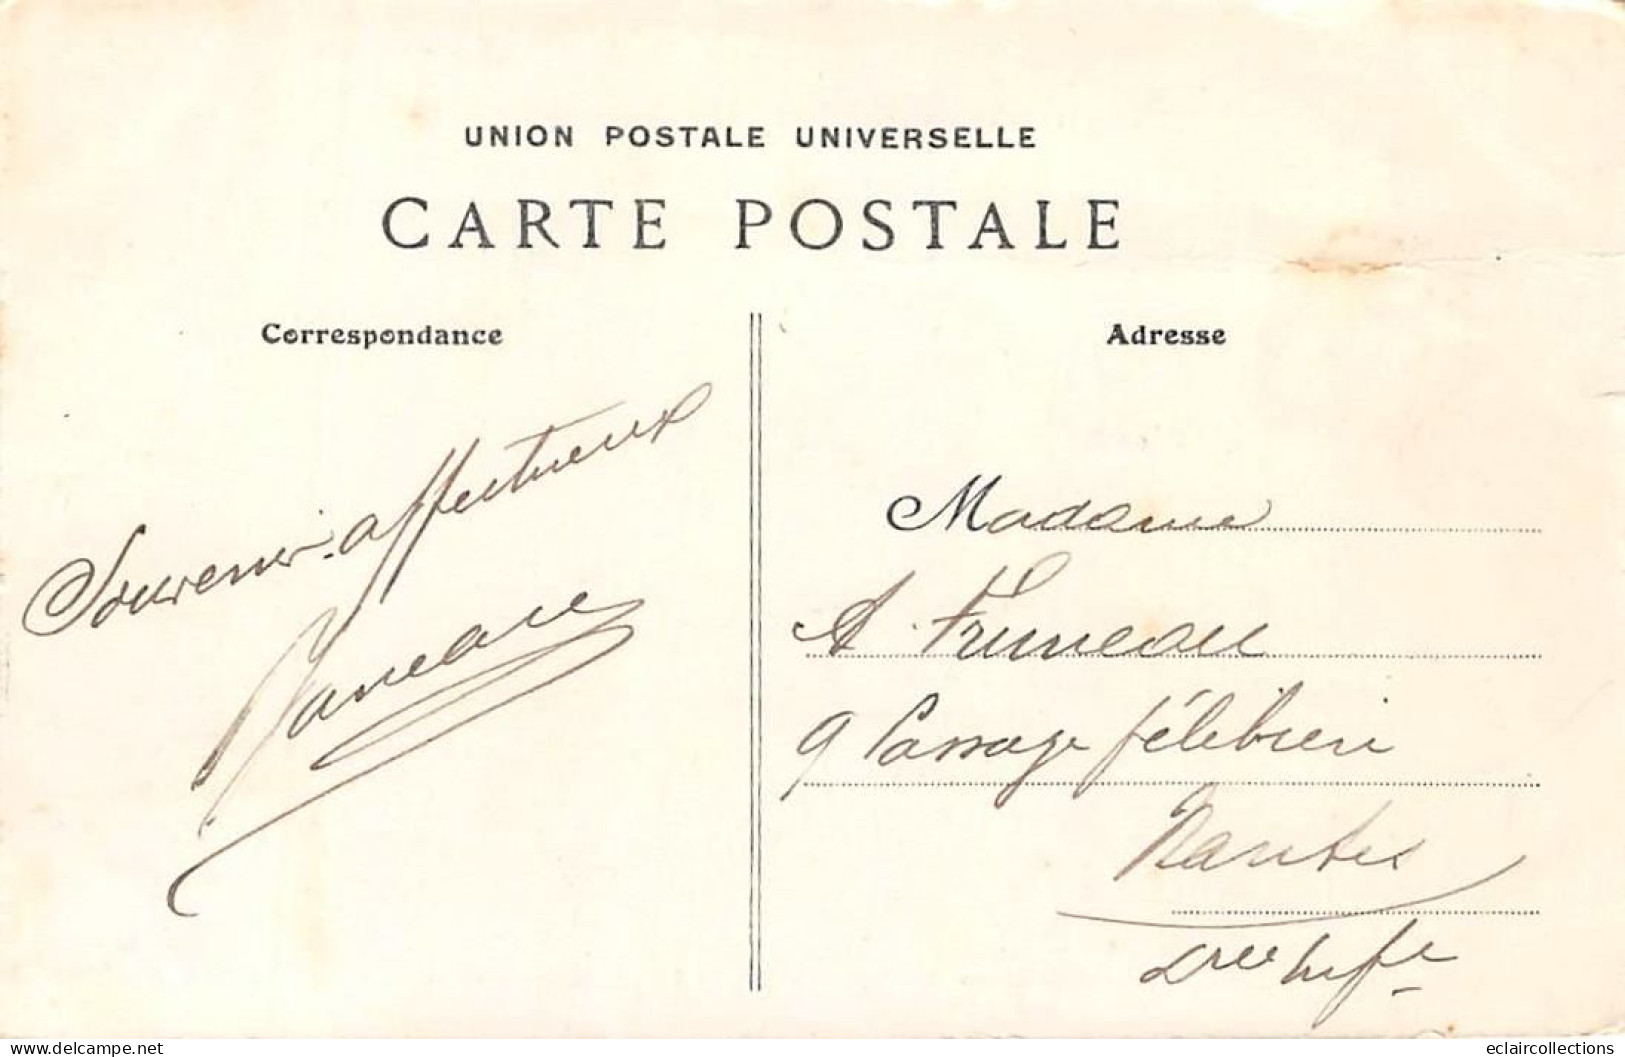 UNION POSTALE UNIVERSELLE
CARTE POSTALE
Correspondance
Adresse
Souvenir affectueux
Madame
A. Fruneau
9 Passage félibien
Nantes
Lre Infre
the-postcard.delcampe.net
eclaircollections